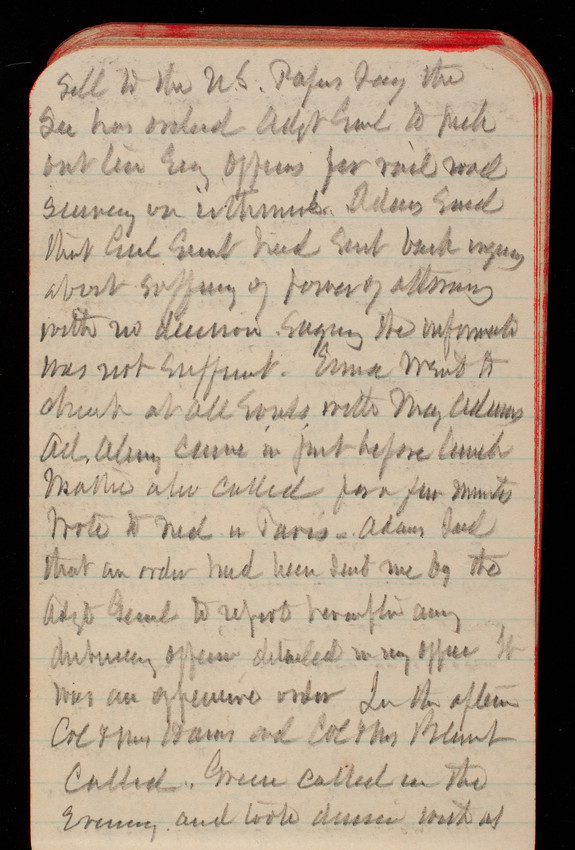 Sell to the U.S. Papers say the
Sec has ordered Adgt Genl to pick
out line Eng officers for rail road
survey on isthmus. Adams said
that Genl Grant had sent back
about of power of attorney
with no decision saying the
was not sufficient. Emma went to
church at All Souls with May Adams
Ad. came in just before lunch
Mattie also called for a few minutes
Wrote to Ned in Paris - Adams said
that an order had been sent me by the
Adgt Genl to report hereafter any
disbursing officer detailed in my office It
was an offensive order In the aftern
Col & Mrs and Col & Mrs Blunt
Called. Green called in the
Evening and took dinner with us